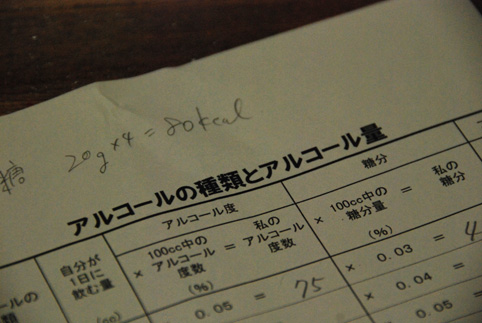 糖 20g×4=80kcal
アルコールの種類とアルコール量
アルコール度
糖分
自分が
1日に
飲む量
(cc)
×
100cc中の
アルコール
度数
(%)
=
私の
アルコール
度数
×
100cc中の
糖分量
(%)
=
私の
糖分
ールの
0.05 = 75
× 0.03 = 4
× 0.04 =
0.05